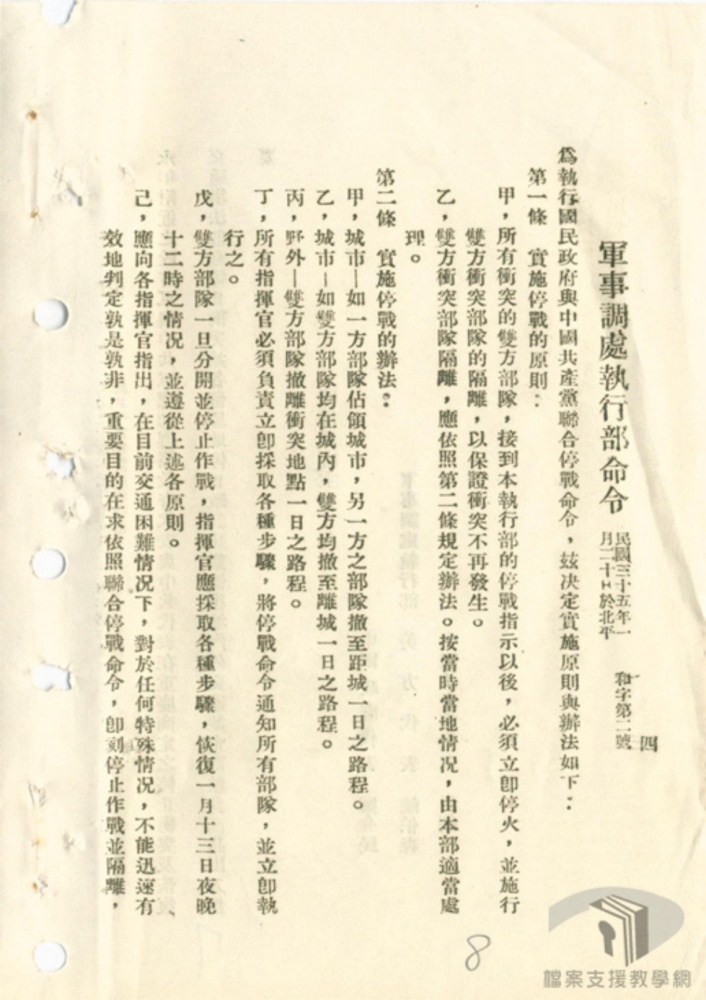 四
軍事調處執行部命令
民國三十五年一
月二十日於北平
和字第二號
為執行國民政府與中國共產黨聯合停戰命令，茲決定實施原則與辦法如下：
第一條　實施停戰的原則：
甲，所有衝突的雙方部隊，接到本執行部的停戰指示以後，必須立卽停火，並施行
雙方衝突部隊的隔離，以保證衝突不再發生。
乙，雙方衝突部隊隔離，應依照第二條規定辦法。按當時當地情况，由本部適當處
理。
第二條　實施停戰的辦法：
甲，城市—如一方部隊佔領城市，另一方之部隊撤至距城一日之路程。
乙，城市—如雙方部隊均在城內，雙方均撤至離城一日之路程。
丙，野外—雙方部隊撤離衝突地點一日之路程。
丁，所有指揮官必須負責立卽採取各種步驟，將停戰命令通知所有部隊，並立卽執
行之。
戊，雙方部隊一旦分開並停止作戰，指揮官應採取各種步驟，恢復一月十三日夜晚
十二時之情况，並遵從上述各原則。
己，應向各指揮官指出，在目前交通困難情况下，對於任何特殊情况，不能迅速有
效地判定孰是孰非，重要目的在求依照聯合停戰命令，卽刻停止作戰並隔離，
8
檔案支援教學網